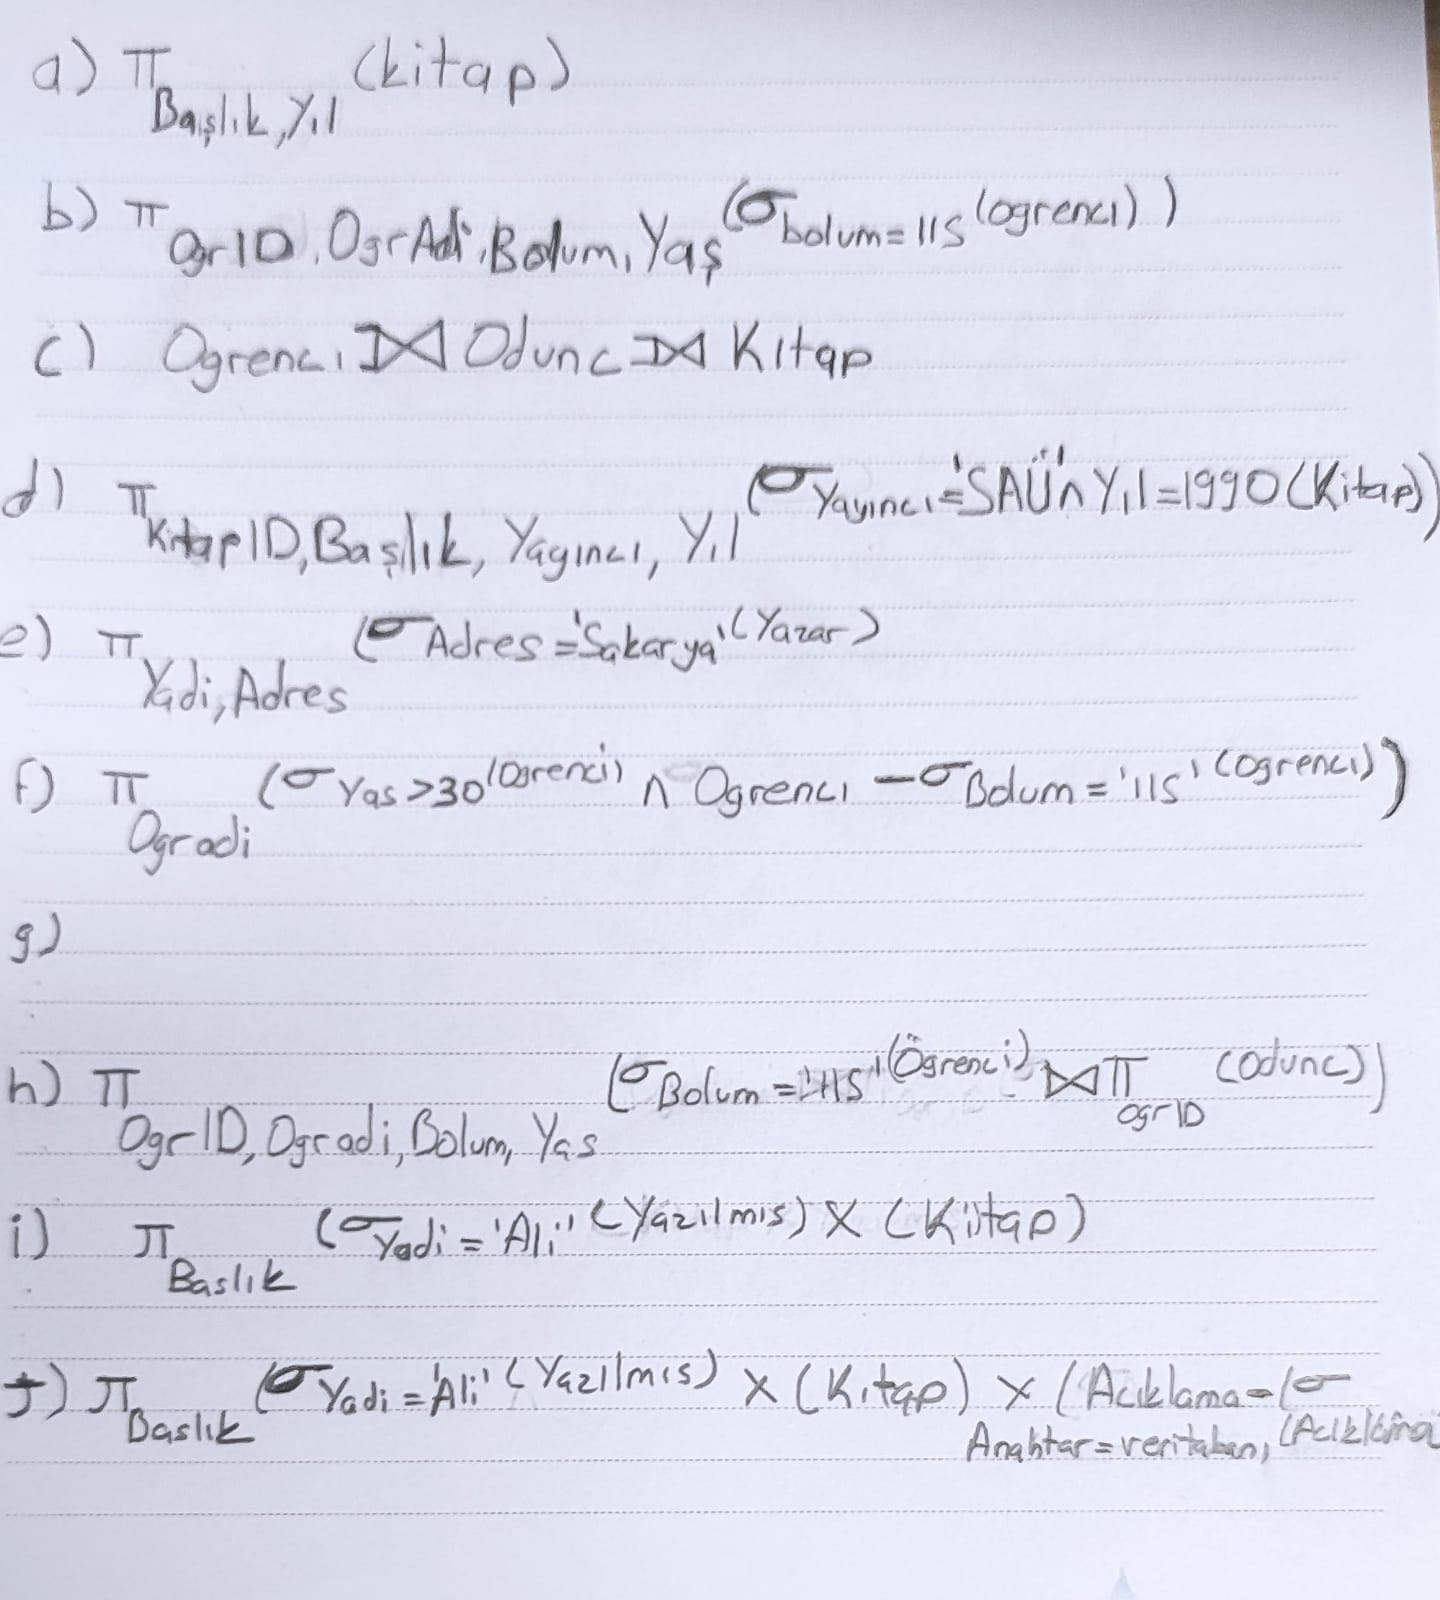 a) π Başlık, Yıl (kitap)
b) π OgrID, OgrAdi, Bolum, Yaş (σ bolum=IIS (ogrenci))
c) Ogrenci ⋈ Odunc ⋈ Kitap
d) π KitapID, Başlık, Yayıncı, Yıl (σ Yayıncı='SAÜ' ∩ Yıl=1990 (Kitap))
e) π Yadi, Adres (σ Adres='Sakarya' (Yazar)
f) π Ogradi (σ Yas>30 (Ogrenci) ∩ Ogrenci - σ Bolum='IIS' (ogrenci))
g)
h) π OgrID, Ogradi, Bolum, Yas (σ Bolum='IIS' (Ögrenci) ⋈ π OgrID (odunc))
i) π Baslık (σ Yadi='Ali' (Yazılmis) X (Kitap)
j) π Baslık (σ Yadi='Ali' (Yazılmıs) X (Kitap) X (Acıklama-(σ Anahtar=veritabanı (Acıklama